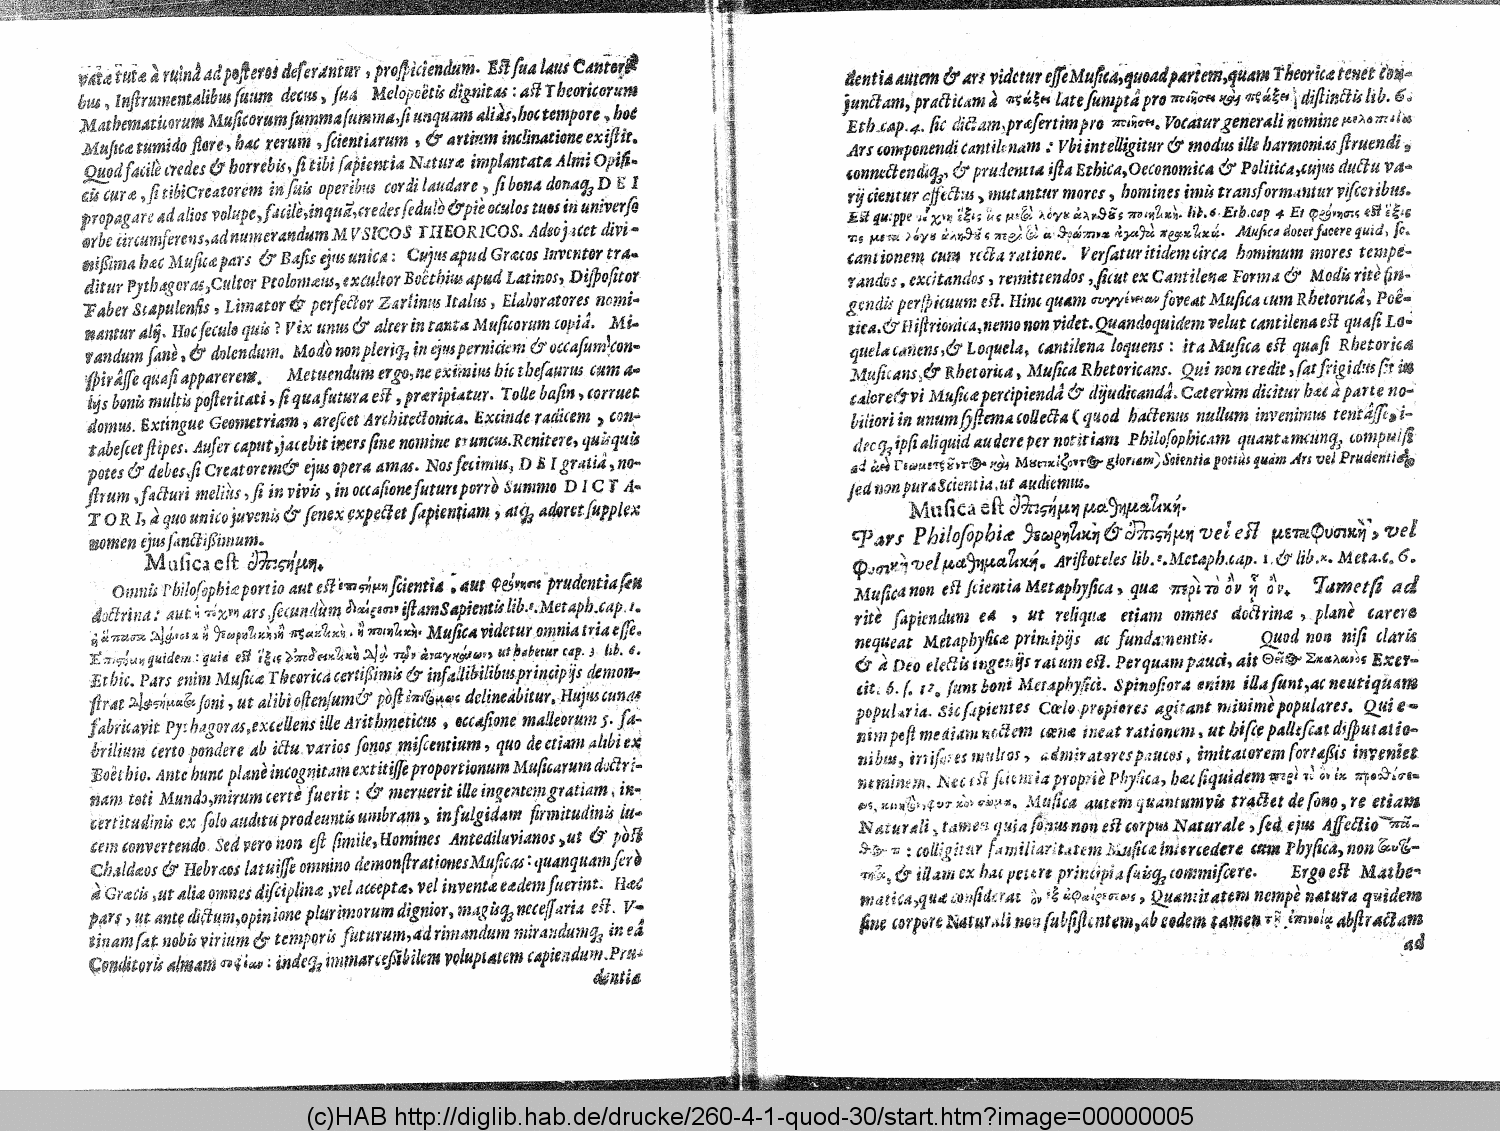 vatæ tutæ à ruinâ ad posteros deferantur, prospiciendum. Est sua laus Cantori-
bus, Instrumentalibus suum decus, sua Melopoëtis dignitas: ast Theoricorum
Mathematicorum Musicorum summa summa, si unquam aliàs, hoc tempore, hoc
Musicæ tumido flore, hac rerum, scientiarum, & artium inclinatione existit.
Quod facilè credes & horrebis, si tibi sapientia Naturæ implantata Almi Opifi-
cis curæ, si tibi Creatorem in suis operibus cordi laudare, si bona donaq; DEI
propagare ad alios volupe, facilè, inquā, credes sedulò & piè oculos tuos in universo
orbe circumferens, ad numerandum MVSICOS THEORICOS. Adeo jacet divi-
nißima hæc Musicæ pars & Basis ejus unica: Cujus apud Græcos Inventor tra-
ditur Pythagoras, Cultor Ptolomæus, excultor Boëthius apud Latinos, Dispositor
Faber Stapulensis, Limator & perfector Zarlinus Italus, Elaboratores nomi-
nantur alij. Hoc seculo quis? Vix unus & alter in tanta Musicorum copiâ. Mi-
randum sanè, & dolendum. Modò non pleriq; in ejus perniciem & occasum con-
spirâsse quasi apparerent. Metuendum ergo, ne eximius hic thesaurus cum a-
lijs bonis multis posteritati, si qua futura est, præripiatur. Tolle basin, corruet
domus. Extingue Geometriam, arescet Architectonica. Excinde radicem, con-
tabescet stipes. Aufer caput, jacebit iners sine nomine truncus. Renitere, quisquis
potes & debes, si Creatorem & ejus opera amas. Nos fecimus, DEI gratiâ, no-
strum, facturi meliùs, si in vivis, in occasione futuri porrò Summo DICTA-
TORI, à quo unico juvenis & senex expectet sapientiam, atq; adoret supplex
nomen ejus sanctißimum.
Musica est ἐπιςήμη.
Omnis Philosophiæ portio aut est ἐπιςήμη scientia, aut φρόνησις prudentia seu
doctrina: aut ἡ τέχνη ars, secundùm διαίρεσιν istam Sapientis lib. 1. Metaph. cap. 1.
Musica videtur omnia tria esse.
Ἐπιςήμη quidem: quia est ἕξις ἀποδεικτικὴ ut habetur cap. 3. lib. 6.
Ethic. Pars enim Musicæ Theorica certißimis & infallibilibus principijs demon-
strat soni, ut alibi ostensum & pòst delineabitur. Hujus cunas
fabricavit Pythagoras, excellens ille Arithmeticus, occasione malleorum 5. fa-
brilium certo pondere ab ictu varios sonos miscentium, quo de etiam alibi ex
Boëthio. Ante hunc planè incognitam extitisse proportionum Musicarum doctri-
nam toti Mundo, mirum certè fuerit: & meruerit ille ingentem gratiam, in-
certitudinis ex solo auditu prodeuntis umbram, in fulgidam firmitudinis lu-
cem convertendo. Sed vero non est simile, Homines Antediluvianos, ut & pòst
Chaldæos & Hebræos latuisse omnino demonstrationes Musicas: quanquam serò
à Græcis, ut aliæ omnes disciplinæ, vel acceptæ, vel inventæ eædem fuerint. Hæc
pars, ut ante dictum, opinione plurimorum dignior, magisq; necessaria est. V-
tinam sat nobis virium & temporis futurum, ad rimandum mirandumq; in eâ
Conditoris almam σοφίαν: indeq; immarcessibilem voluptatem capiendum. Pru-
dentia
dentia autem & ars videtur esse Musica, quoad partem, quam Theorica tenet con-
junctam, practicam à πράξει late sumptâ pro ποιήσει καὶ πράξει, distinctis lib. 6.
Eth. cap. 4. sic dictam, præsertim pro ποιήσει. Vocatur generali nomine μελοποιία
Ars componendi cantilenam: Vbi intelligitur & modus ille harmonias struendi,
connectendiq;, & prudentia ista Ethica, Oeconomica & Politica, cujus ductu va-
rij cientur affectus, mutantur mores, homines imis transformantur visceribus.
Est quippe τέχνη ἕξις lib. 6. Eth. cap 4 Et φρόνησις est ἕξις
Musica docet facere quid, sc.
cantionem cum recta ratione. Versatur itidem circa hominum mores tempe-
randos, excitandos, remittendos, sicut ex Cantilenæ Forma & Modis ritè fin-
gendis perspicuum est. Hinc quam συγγένειαν foveat Musica cum Rhetoricâ, Poë-
tica, & Histrionica, nemo non videt. Quandoquidem velut cantilena est quasi Lo-
quela canens, & Loquela, cantilena loquens: ita Musica est quasi Rhetorica
Musicans, & Rhetorica, Musica Rhetoricans. Qui non credit, sat frigidus sit in
calore & vi Musicæ percipiendâ & dijudicandâ. Cæterùm dicitur hæc à parte no-
biliori in unum systema collecta (quod hactenus nullum invenimus tentâsse, i-
deoq; ipsi aliquid audere per notitiam Philosophicam quantamcunq; compulsi
gloriam) Scientia potiùs quàm Ars vel Prudentia,
sed non pura Scientia, ut audiemus.
Musica est ἐπιςήμη μαθηματική.
Pars Philosophiæ θεωρητικὴ & ἐπιςήμη vel est μεταφυσικὴ, vel
φυσικὴ vel μαθηματική. Aristoteles lib. Metaph. cap. 1. & lib. Meta. c. 6.
Musica non est scientia Metaphysica, quæ περὶ τὸ ὂν ᾗ ὄν. Tametsi ad
ritè sapiendum ea, ut reliquæ etiam omnes doctrinæ, planè carere
nequeat Metaphysicæ principijs ac fundamentis. Quod non nisi claris
& à Deo electis ingenijs ratum est. Perquam pauci, ait Exer-
cit. 6. s. 17. sunt boni Metaphysici. Spinosiora enim illa sunt, ac neutiquam
popularia. Sic sapientes Cœlo propiores agitant minimè populares. Qui e-
nim post mediam noctem cœnæ ineat rationem, ut hisce pallescat disputatio-
nibus, irrisores multos, admiratores paucos, imitatorem fortaßis inveniet
neminem. Nec est scientia propriè Physica, hæc siquidem
Musica autem quantumvis tractet de sono, re etiam
Naturali, tamen quia sonus non est corpus Naturale, sed ejus Affectio πά-
θος τι: colligitur familiaritatem Musicæ intercedere cum Physica, non ταυτό-
τητα, & illam ex hac petere principia suisq; commiscere. Ergo est Mathe-
matica, quæ considerat ὂν ἐξ ἀφαιρέσεως, Quantitatem nempè natura quidem
sine corpore Naturali non subsistentem, ab eodem tamen τῇ ἐπινοίᾳ abstractam
ad
(c)HAB http://diglib.hab.de/drucke/260-4-1-quod-30/start.htm?image=00000005